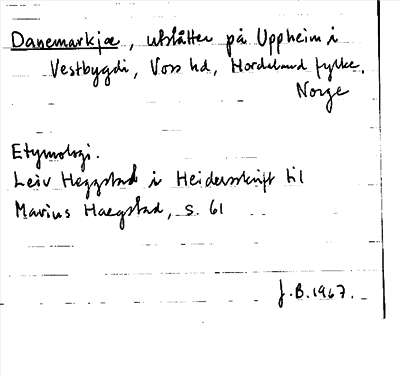 Danemarkjæ, utslåtter på Uppheim i
Vestbygdi, Voss hd, Hordaland fylke,
Norge
Etymologi.
Leiv Heggstad i Heidersskrift til
Marius Hægstad, s. 61
J.B. 1967.